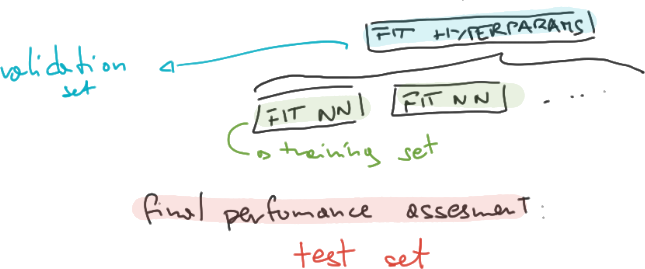 FIT HYPERPARAMS
validation
set
FIT NN FIT NN ....
training set
final perfomance assesment:
test set